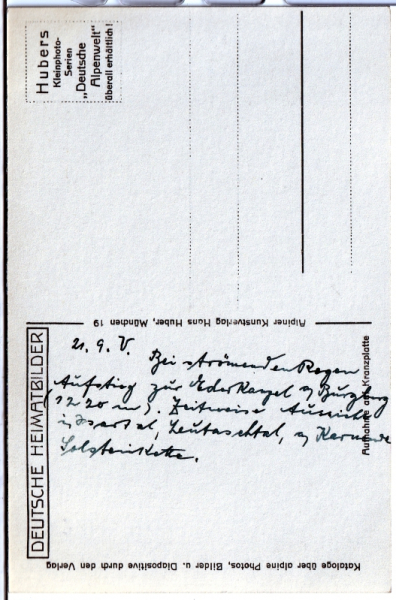 Hubers
Kleinphoto-
Serien
„Deutsche
Alpenwelt"
überall erhältlich!
Alpiner Kunstverlag Hans Huber, München 19
DEUTSCHE HEIMATBILDER
21. 9. V.
Bei strömenden Regen
Aufstieg zur Ederkanzel
(1220 m). Zeitweise Aussicht
Isartal, Leutaschtal,
Solsteinkette.
Aufnahme auf Kranzplatte
Kataloge über alpine Photos, Bilder u. Diapositive durch den Verlag